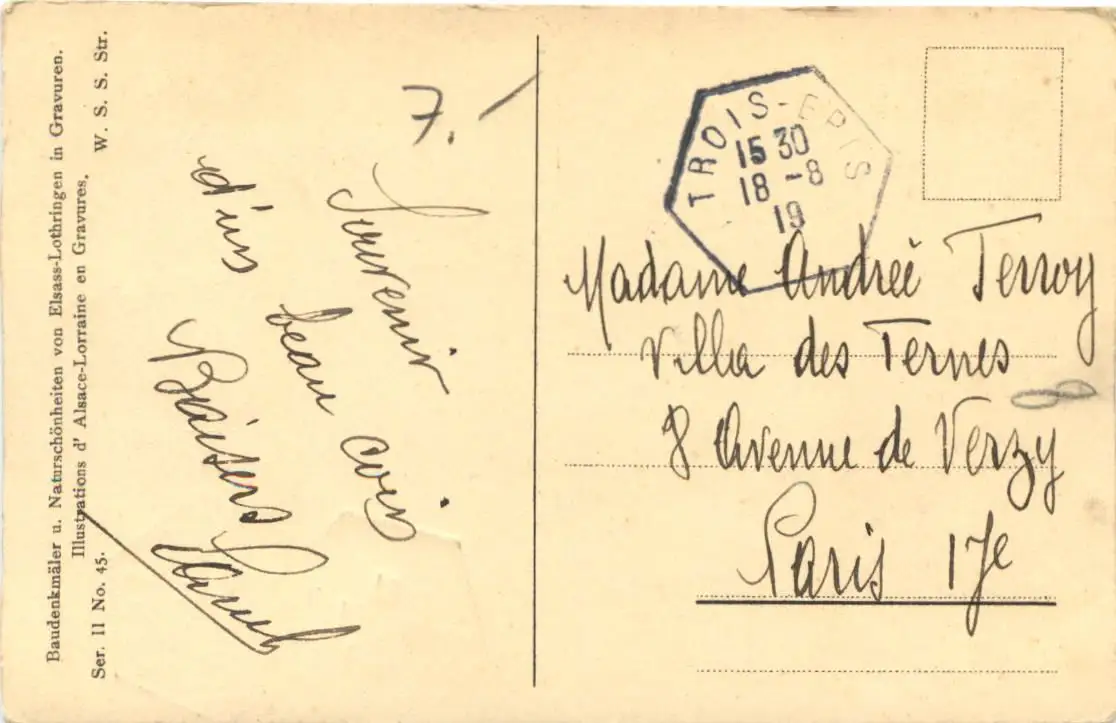 Baudenkmäler u. Naturschönheiten von Elsass-Lothringen in Gravuren.
Illustrations d' Alsace-Lorraine en Gravures.
Ser. II No. 45. W. S. S. Str.
7.
Souvenir
d'un beau coin
Baisers
TROIS-EPIS
15 30
18 -8
19
Madame Andrée Terroy
Villa des Ternes
8 Avenue de Verzy
Paris 17e